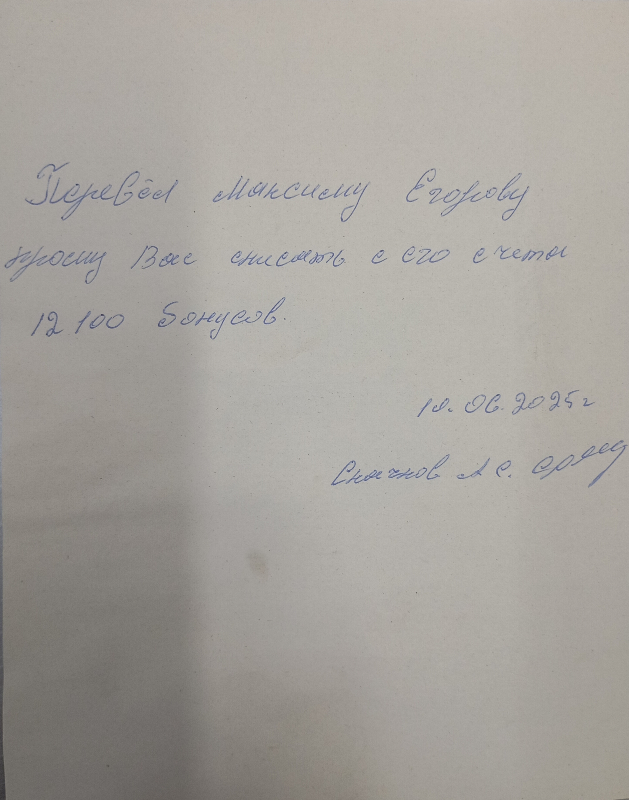 Перевёл Максиму Егорову
прошу Вас списать с его счета
12 100 бонусов.
10.06.2025г
А.С.